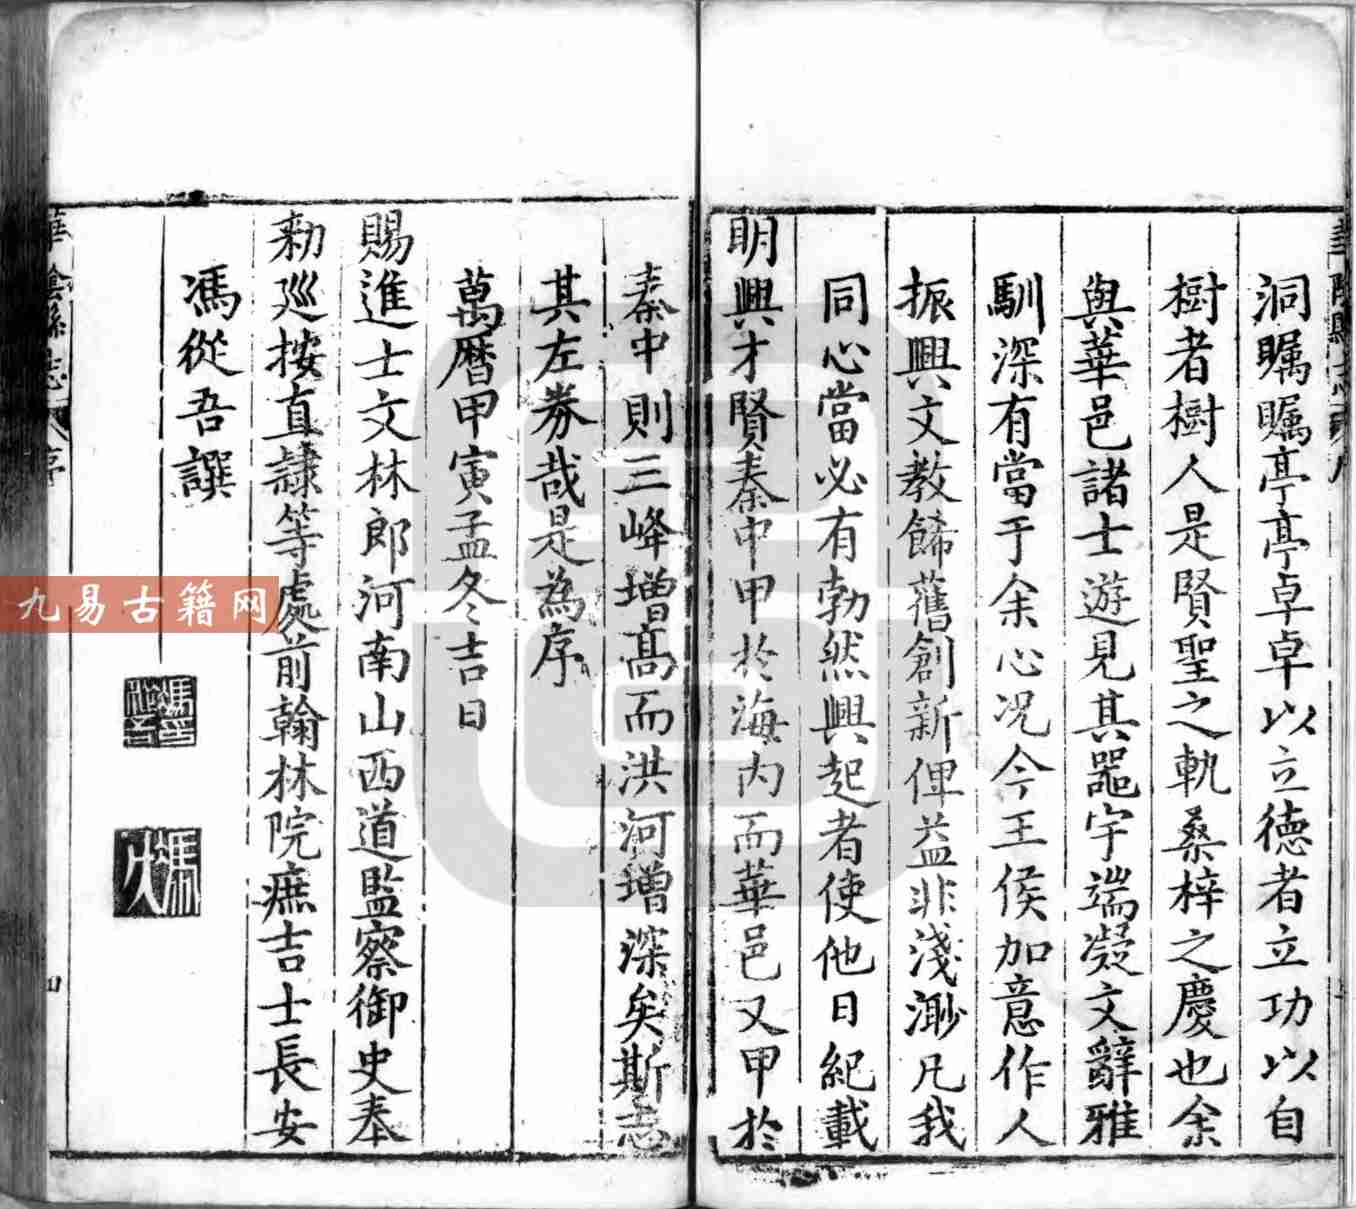 洞矚矚亭亭卓卓以立德者立功以自
樹者樹人是賢聖之軌桑梓之慶也余
與華邑諸士遊見其器宇端凝文辭雅
馴深有當于余心况今王侯加意作人
振興文教餙舊創新俾益非淺渺凡我
同心當必有勃然興起者使他日紀載
明興才賢秦中甲於海內而華邑又甲於
秦中則三峰增高而洪河增深矣斯志
其左券哉是為序
萬曆甲寅孟冬吉日
賜進士文林郎河南山西道監察御史奉
勑廵按直隸等處前翰林院庶吉士長安
馮從吾譔
華陰縣志 序
九易古籍网